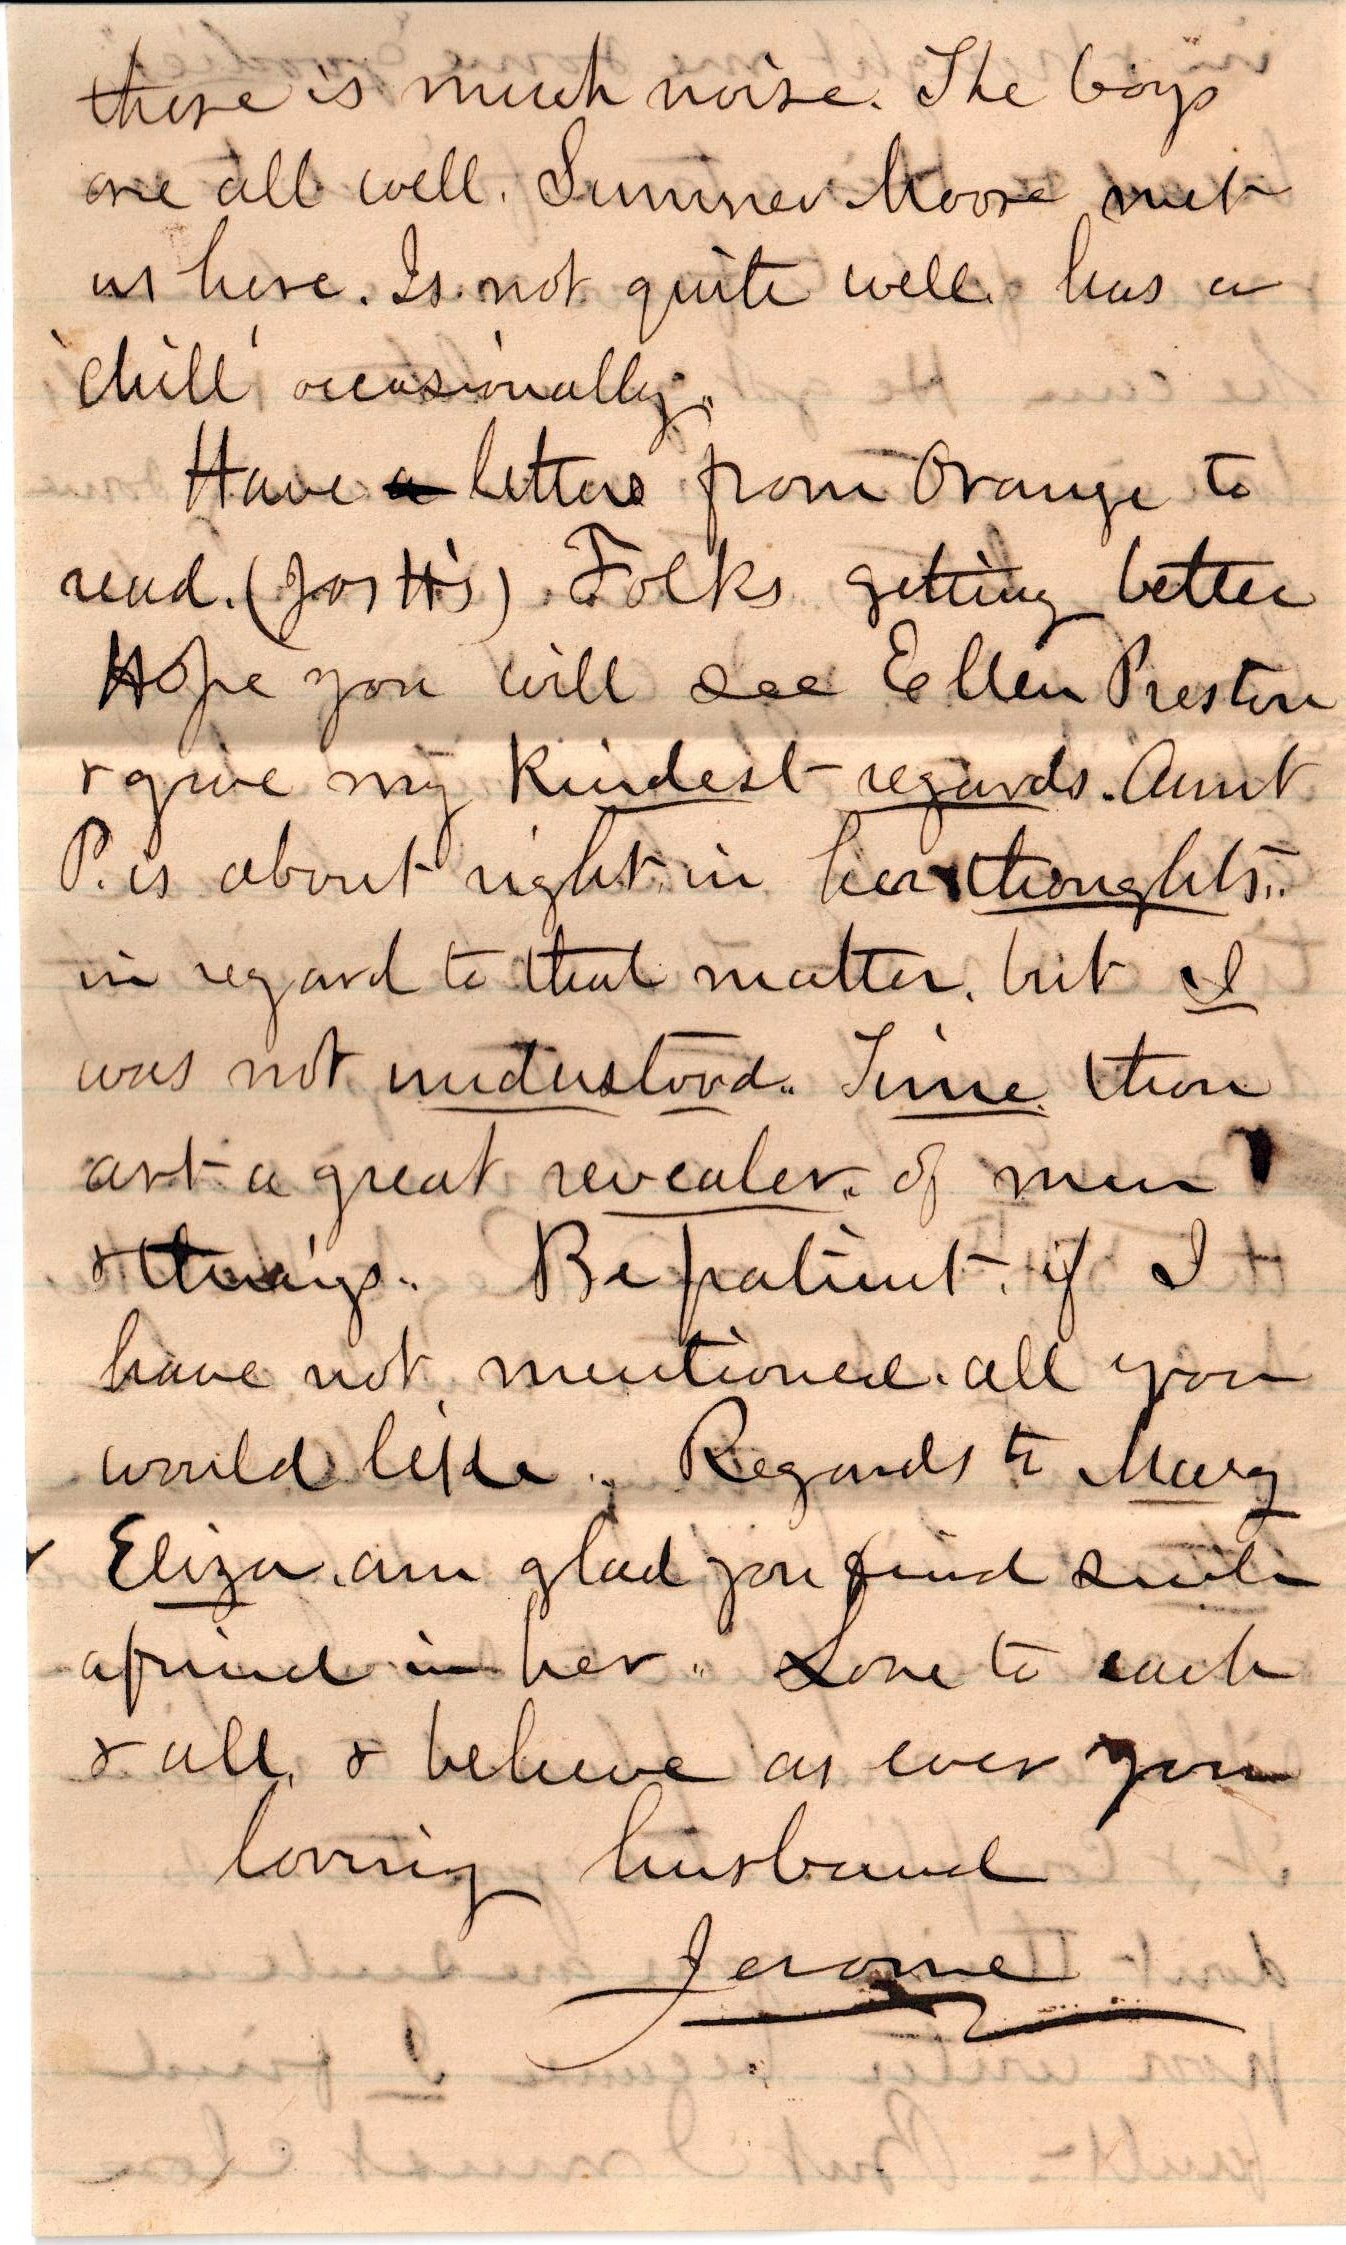 there is much noise. The boys
are all well. Sumner Moore met
us here. Is not quite well. has a
'chill' occasionally.
Have a letters from Orange to
read. (Jos H's) Folks getting better
Hope you will see Ellen Preston
& give my kindest regards. Aunt
P. is about right in her thoughts..
in regard to that matter. but I
was not understood.. Time. thou
art a great revealer. of men
& things.. Be patient. if I
have not mentioned. all you
would like. Regards to Mary
& Eliza. am glad you find such
a friend in her.. Love to each
& all. & believe as ever your
loving husband
Jerome